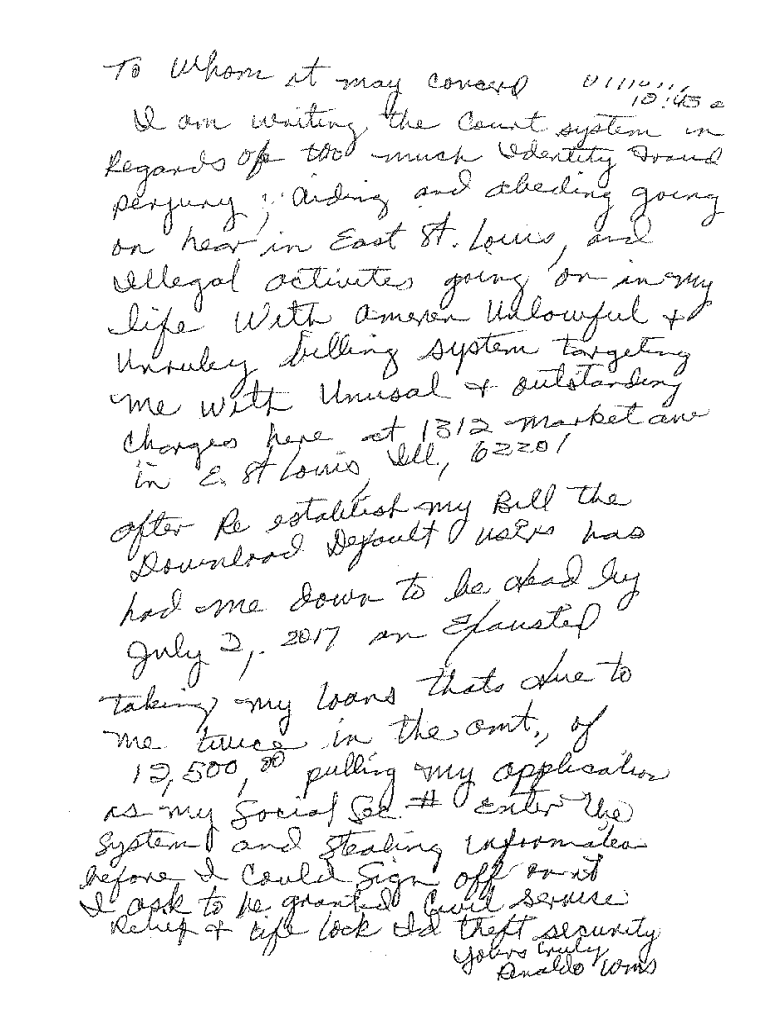 To Whom it may concern
10:45 a
I am writing the Court system in
Regards of too much Identity Fraud
perjury, Aiding and abeding going
on hear in East St. Louis, and
illegal activites going on in my
life With ameren Unlawful +
Unruley billing system targeting
me with Unusal + outstanding
charges here at 1312 market ave
in E. St Louis, Ill, 62201
after Re establish my Bill the
Download Default users has
had me down to be dead by
July 2, 2017 an Exausted
taking my loans thats due to
me twice in the amt., of
12,500,00 pulling my application
as my Social Sec # Enter the
System and Stealing information
before I Could Sign off on it
I ask to be granted Civil Servise
Relief + Life lock Id theft security
Yours truly
Wms